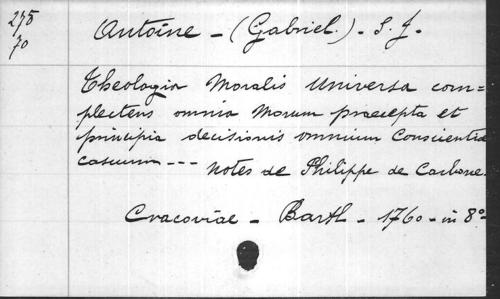 275
70
Antoine - (Gabriel.) - S. J. -
Theologia Moralis Universa com=
plectens omnia Morum praecepta et
principia decisionis omnium Conscientiae
casuum --- notes de Philippe de Carbone.
Cracoviae - Barth - 1760 - in 8º